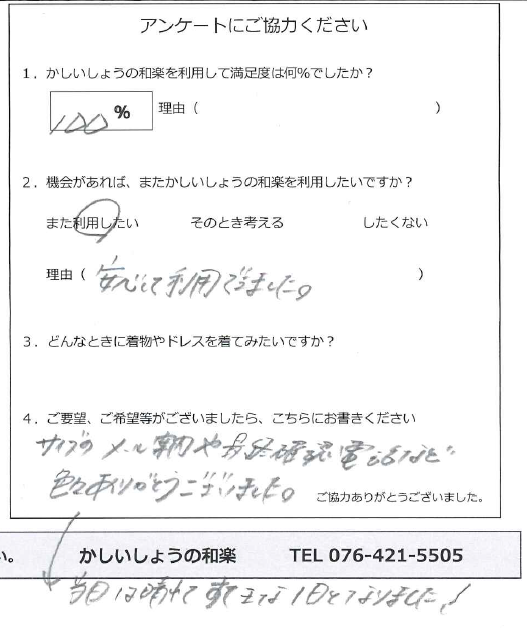 アンケートにご協力ください
1．かしいしょうの和楽を利用して満足度は何％でしたか？
100 % 理由（ ）
2．機会があれば、またかしいしょうの和楽を利用したいですか？
また利用したい そのとき考える したくない
理由（ 安心して利用できました。 ）
3．どんなときに着物やドレスを着てみたいですか？
4．ご要望、ご希望等がございましたら、こちらにお書きください
サイズの メール や最終確認電話など
色々ありがとうございました。 ご協力ありがとうございました。
い。 かしいしょうの和楽 TEL 076-421-5505
当日は晴れて すてきな1日となりました！